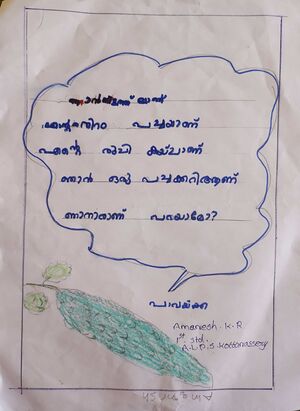 എന്റെ നിറം പച്ചയാണ്
എന്റെ രുചി കയ്പാണ്
ഞാൻ ഒരു പച്ചക്കറിആണ്
പറയാമോ?
പാവയ്ക്ക
Amaresh. K. R
1st std.
A.L.P.S. Kottonassery